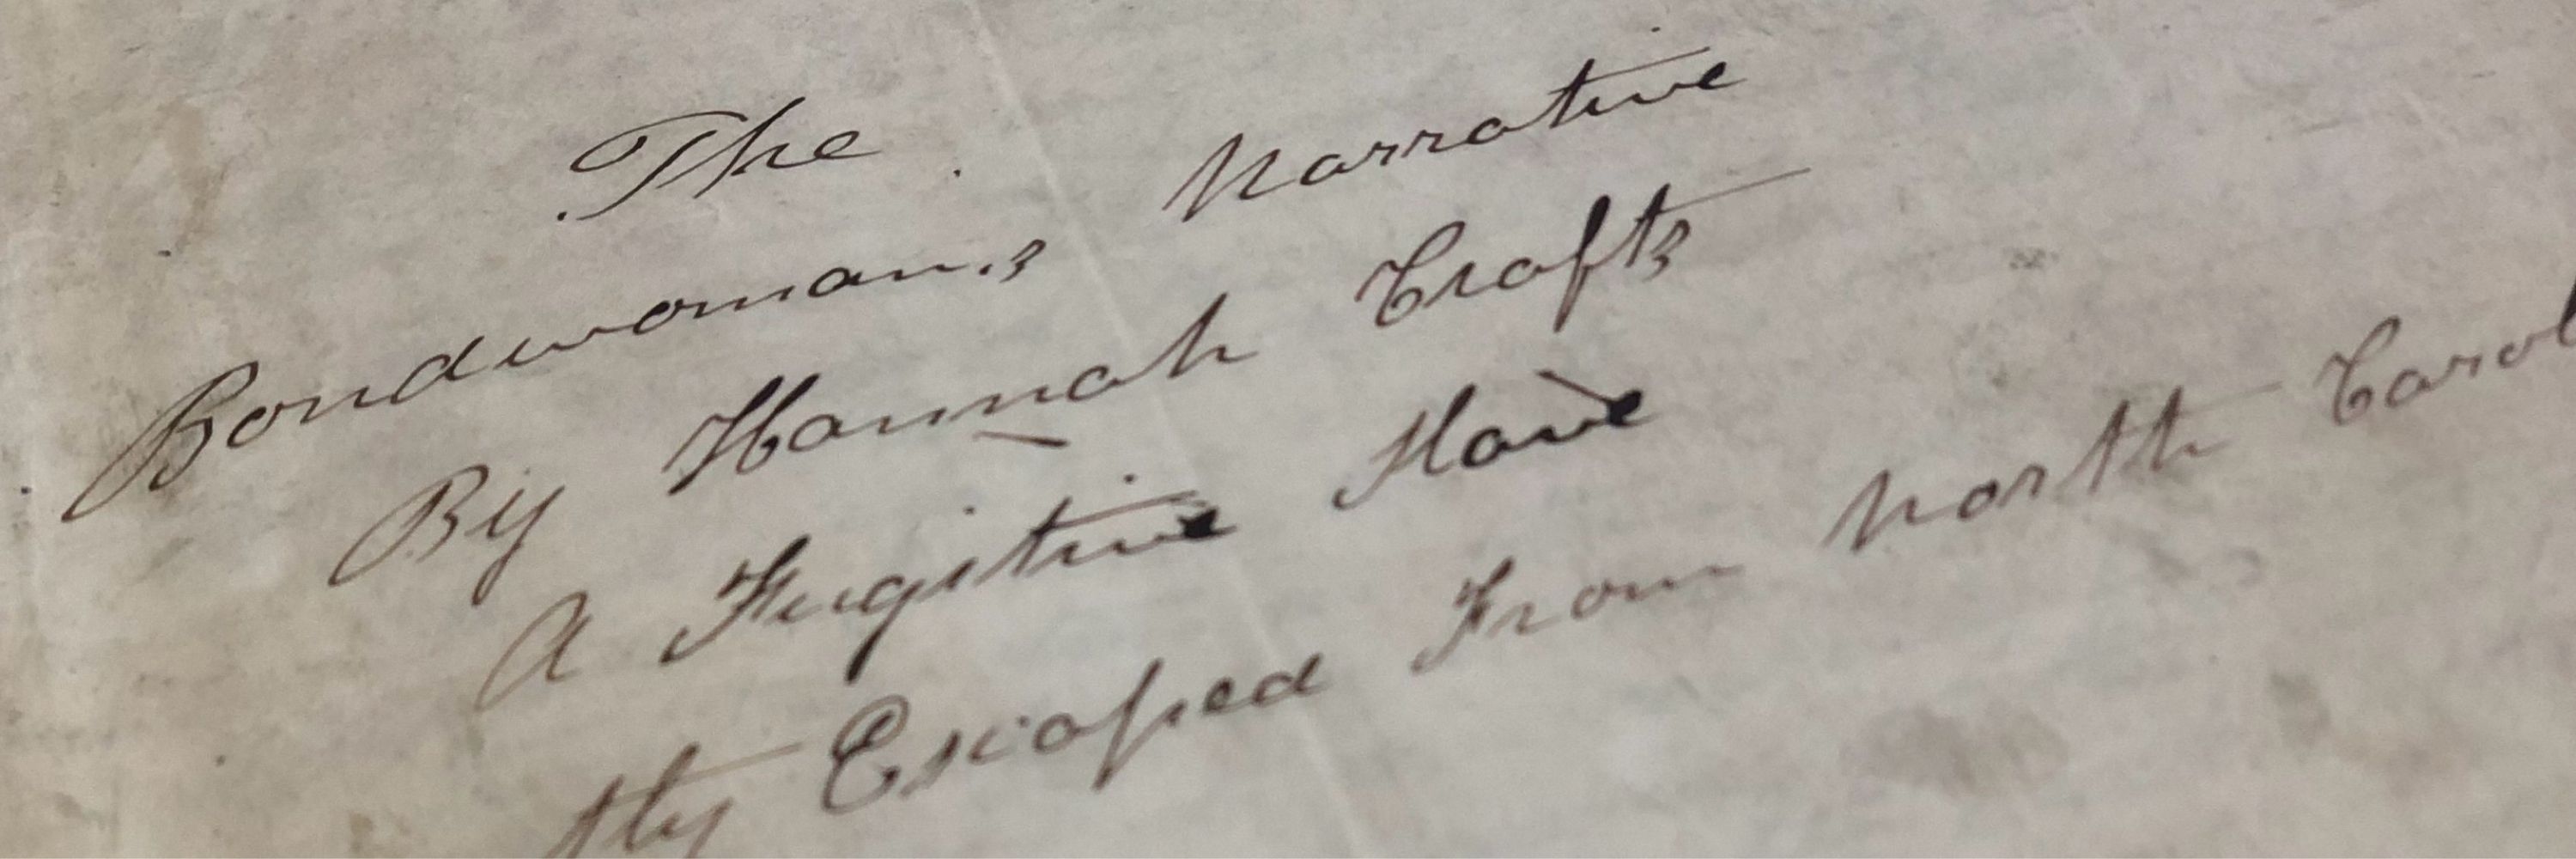 The
Bondwoman's Narrative
By Hannah Crafts
A Fugitive Slave
tly Escaped From North Carol